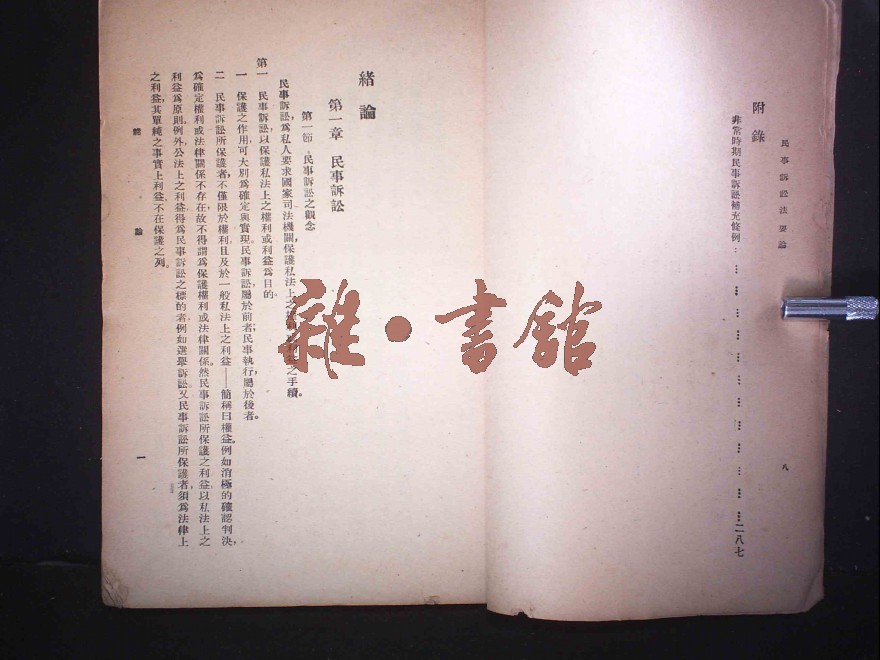 民事訴訟法要論
附錄
非常時期民事訴訟補充條例……………………………二八七
八
緒論
第一章 民事訴訟
第一節 民事訴訟之觀念
民事訴訟爲私人要求國家司法機關，保護私法上之權利或利益之手續。
第一 民事訴訟，以保護私法上之權利或利益爲目的。
一 保護之作用，可大別爲確定與實現。民事訴訟，屬於前者；民事執行，屬於後者。
二 民事訴訟所保護者，不僅限於權利，且及於一般私法上之利益——簡稱曰權益。例如消極的確認判決，
爲確定權利或法律關係不存在，故不得謂爲保護權利或法律關係。然民事訴訟所保護之利益，以私法上之
利益爲原則。例外，公法上之利益得爲民事訴訟之標的者，例如選舉訴訟。又民事訴訟所保護者，須爲法律上
之利益，其單純之事實上利益，不在保護之列。
緒論
一
雜·書館